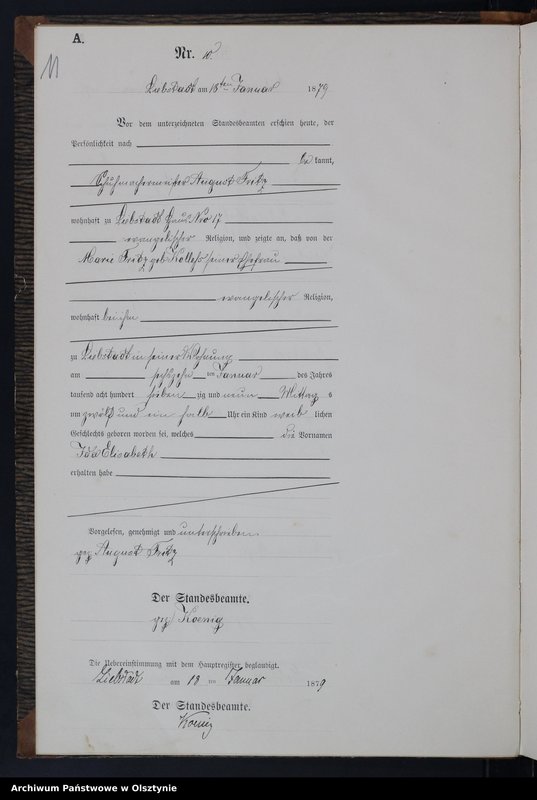 A.
Nr. 10.
11
Liebstadt am 18ten Januar 1879
Vor dem unterzeichneten Standesbeamten erschien heute, der
Persönlichkeit nach
be kannt,
Schuhmachermeister August Fritz
wohnhaft zu Liebstadt Haus Nro 17
evangelischer Religion, und zeigte an, daß von der
Marie Fritz geb. seiner Ehefrau
evangelischer Religion,
wohnhaft bei ihm
zu Liebstadt in seiner Wohnung
am sechszehn ten Januar des Jahres
tausend acht hundert sieben zig und neun Mittag s
um zwölf und ein halb Uhr ein Kind weib lichen
Geschlechts geboren worden sei, welches die Vornamen
Ida Elisabeth
erhalten habe
Vorgelesen, genehmigt und unterschrieben.
gez. August Fritz
Der Standesbeamte.
gez. Koenig
Die Uebereinstimmung mit dem Hauptregister beglaubigt.
Liebstadt am 18 ten Januar 1879
Der Standesbeamte.
Koenig
Archiwum Państwowe w Olsztynie